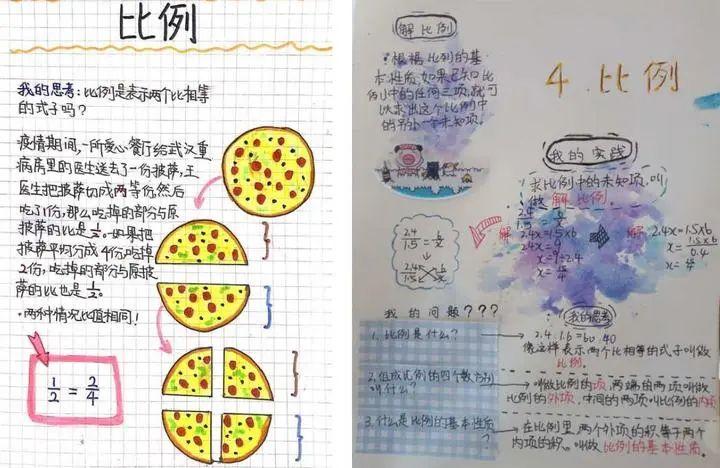 比例
我的思考：比例是表示两个比相等
的式子吗？
疫情期间，一所爱心餐厅给武汉重
病房里的医生送去了一份披萨，王
医生把披萨切成两等份，然后
吃了1份，那么吃掉的部分与原
披萨的比是1/2。如果把
披萨平均分成4份，吃掉
2份，吃掉的部分与原披
萨的比也是1/2。
·两种情况比值相同！
1/2 = 2/4
解比例
·根据比例的基
本性质，如果已知比
例中的任何三项，就可
以求出这个比例中
的另外一个未知项。
4.比例
我的实践
求比例中的未知项，叫
做解比例。
2.4/1.5 = 6/x
解 2.4x=1.5×6
2.4x=9
x=9÷2.4
x=15/4
解 2.4x=1.5×6
x=
1.5×6
2.4/1.5 = 6/x
我的问题？？？
我的思考
1.比例是什么？
2.4:1.6=60:40
像这样表示两个比相等的式子叫做
比例。
2.组成比例的四个数分别
叫什么？
叫做比例的项，两端的两项叫做
比例的外项，中间的两项叫比例的内项
3.什么是比例的基本性质
？
在比例里，两个外项的积等于两个
内项的积。叫做比例的基本性质。